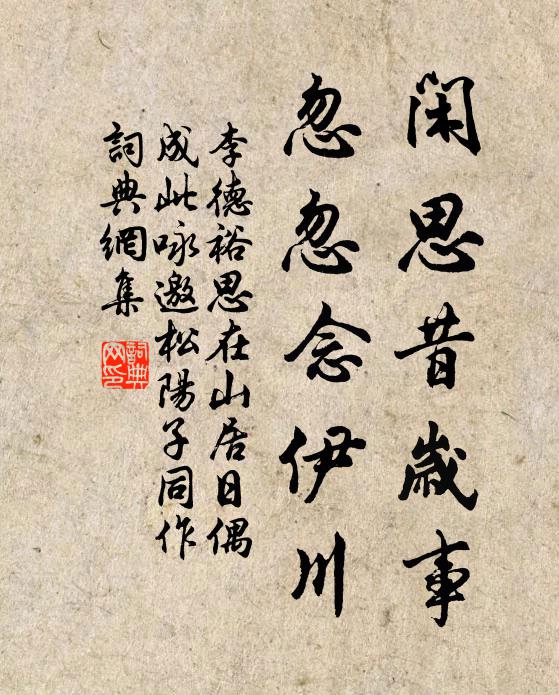 閑思昔歲事
忽忽念伊川
李德裕思在山居日偶
成此咏邀松陽子同作
詞典網集
詞典网印